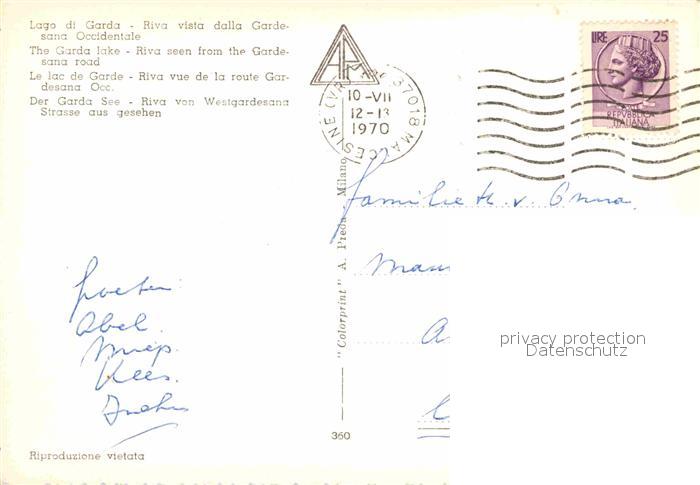 Lago di Garda - Riva vista dalla Garde-
sana Occidentale
The Garda lake - Riva seen from the Garde-
sana road
Le lac de Garde - Riva vue de la route Gar-
desana Occ.
Der Garda See - Riva von Westgardesana
Strasse aus gesehen
37018 MALCESINE (VR)
10-VII
12-13
1970
LIRE 25
REPVBBLICA
ITALIANA
Familie
groeten
Abel.
Miep.
Kees.
"Colorprint" A. Preda Milano
360
Riproduzione vietata
privacy protection
Datenschutz